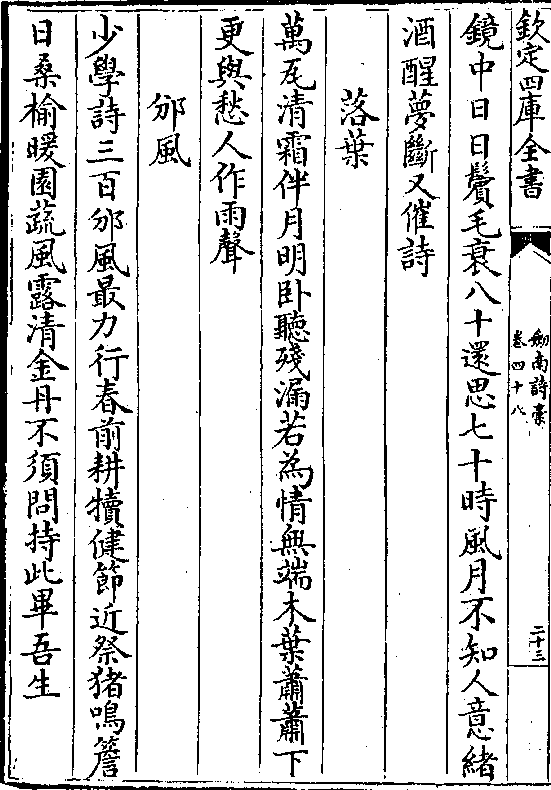 欽定四庫全書
劒南詩槀
卷四十八
二十三
鏡中日日鬢毛衰八十還思七十時風月不知人意緒
酒醒夢斷又催詩
落葉
萬瓦清霜伴月明卧聽殘漏若為情無端木葉蕭蕭下
更與愁人作雨聲
邠風
少學詩三百邠風最力行春前耕犢健節近祭猪鳴簷
日桑榆暖園蔬風露清金丹不須問持此畢吾生